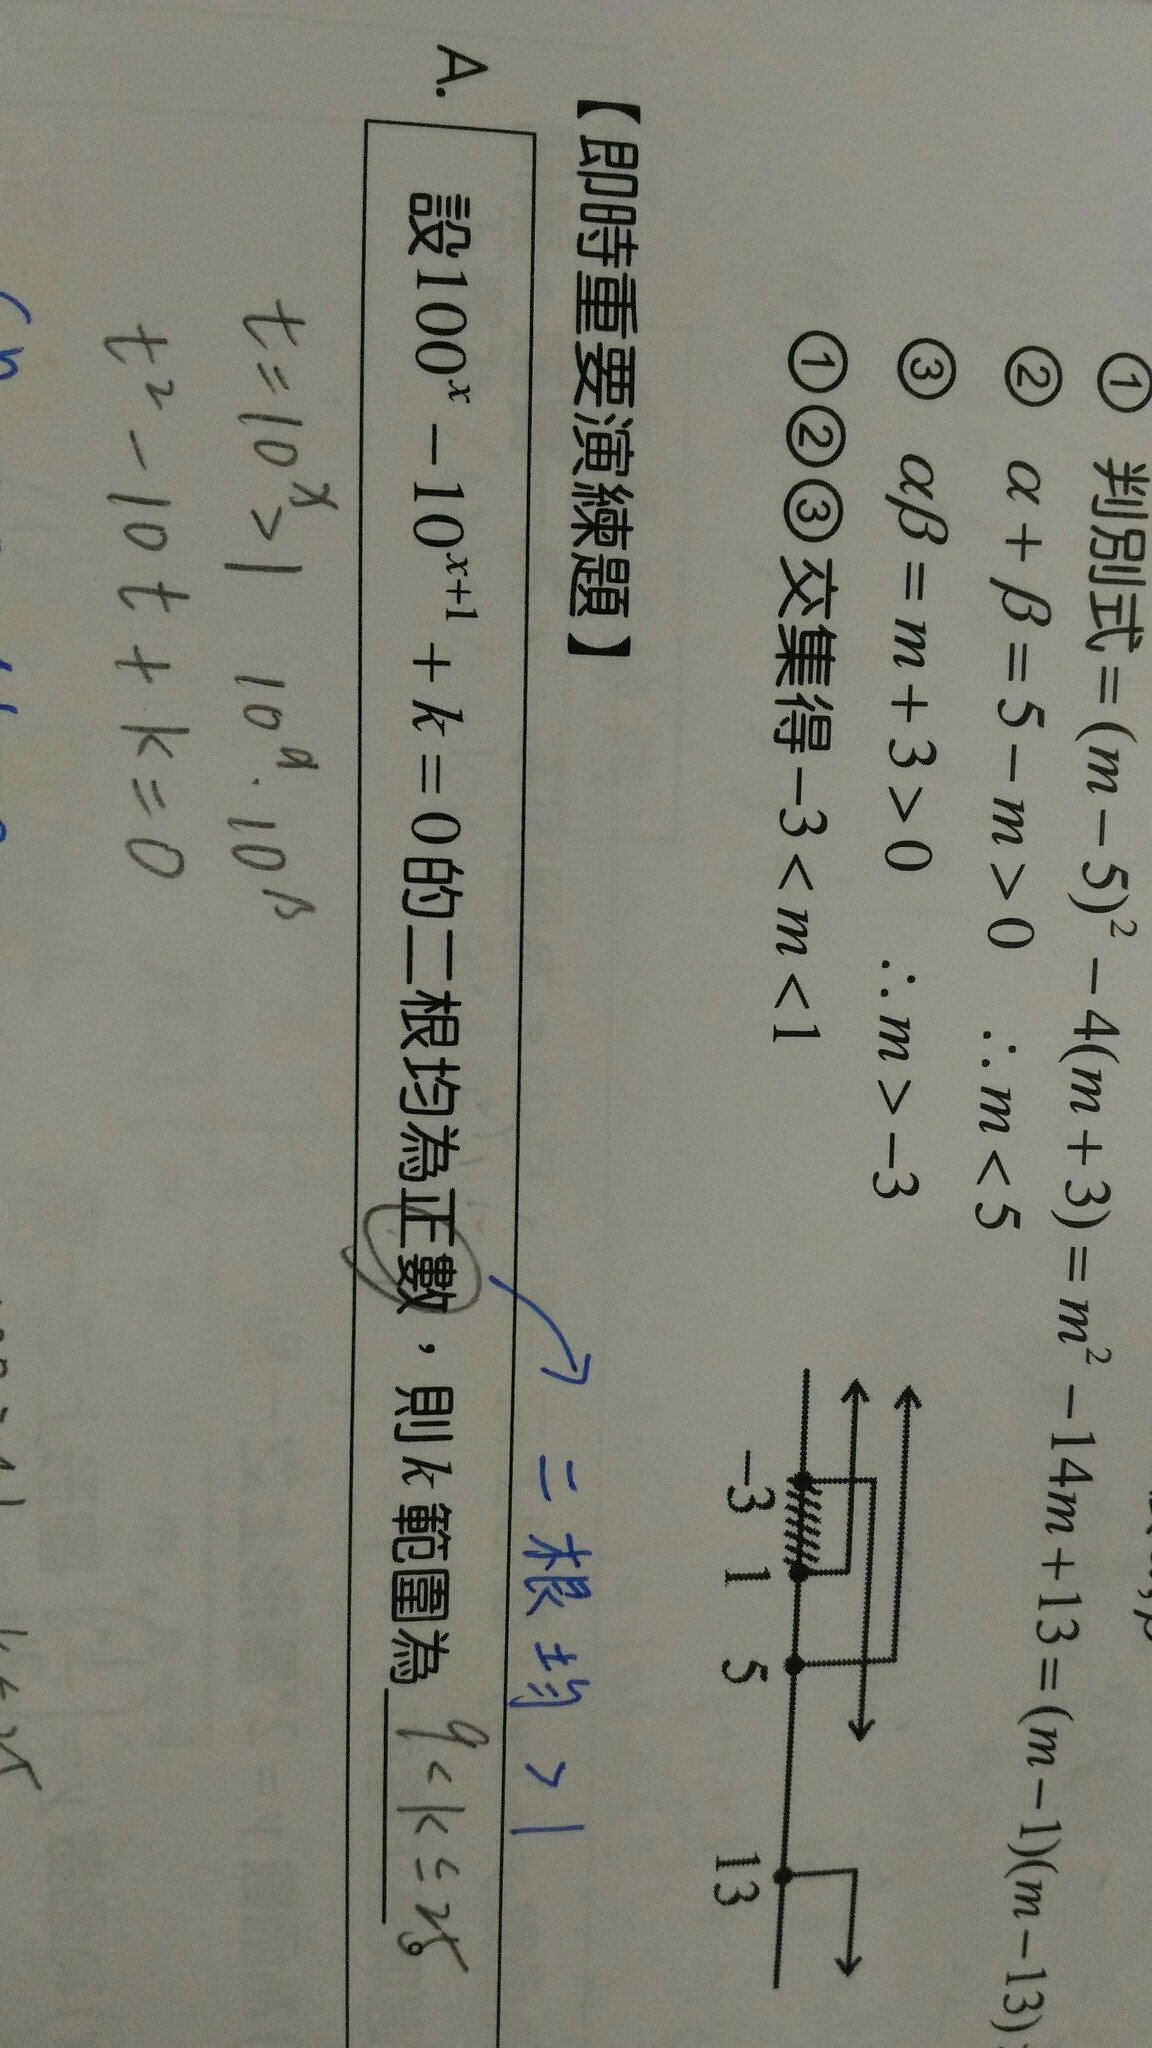 ① 判別式 = (m − 5)² − 4(m + 3) = m² − 14m + 13 = (m − 1)(m − 13)
② α + β = 5 − m > 0 ∴ m < 5
③ αβ = m + 3 > 0 ∴ m > −3
①②③交集得 −3 < m < 1
−3 1 5 13
【即時重要演練題】
二根均 > 1
A. 設100ˣ − 10ˣ⁺¹ + k = 0的二根均為正數，則k範圍為 9 < k ≤ 25。
t = 10ˣ > 1 10^α · 10^β
t² − 10t + k = 0
k ≤ 25